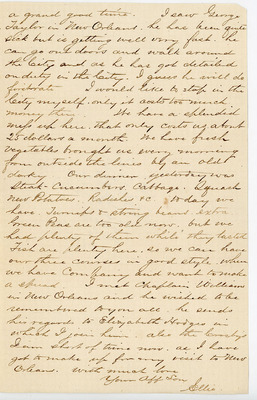 a grand good time. I saw George
Taylor in New Orleans. he has been quite
sick but is getting well very fast. he
can go out doors and walk around
the City and as he has got detailed
on duty in the City, I guess he will do
first rate I would like to stop in the
City myself, only it costs too much
money there. We have a splendid
mess up here, that only costs us about
25 dollars a month. We have fresh
vegetables brought us every morning
from outside the lines by an old
darky Our dinner yesterday was
Steak. Cucumbers, Cabbage, Squash
New Potatoes. Radishes &c. to day we
have. Turnips & string beans extra
Green Peas are too old now, but we
had plenty of them while they lasted
Fish are plenty here, so we can have
our three courses in good style, when
we have Company and want to make
a spread. I met Chaplain Williams
in New Orleans and he wished to be
remembered to you all. he sends
his regards to Elizabeth Hodges in
which I join him. also the family
I am short of time now, as I have
got to make up for my visit to New
Orleans. With much love
Your Aff. Son